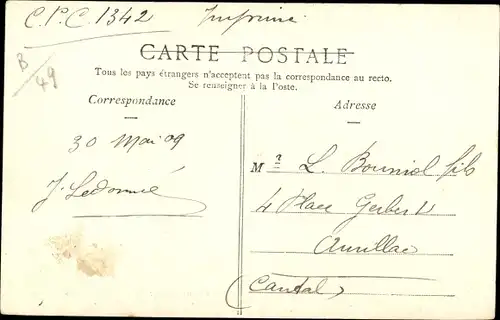 C.P.C. 1342 Imprimé
CARTE POSTALE
B/49
Tous les pays étrangers n'acceptent pas la correspondance au recto.
Se renseigner à la Poste.
Correspondance
Adresse
30 Mai 09
J.
Mr L. Bouniol fils
4 Place Gerbert
Aurillac
(Cantal)